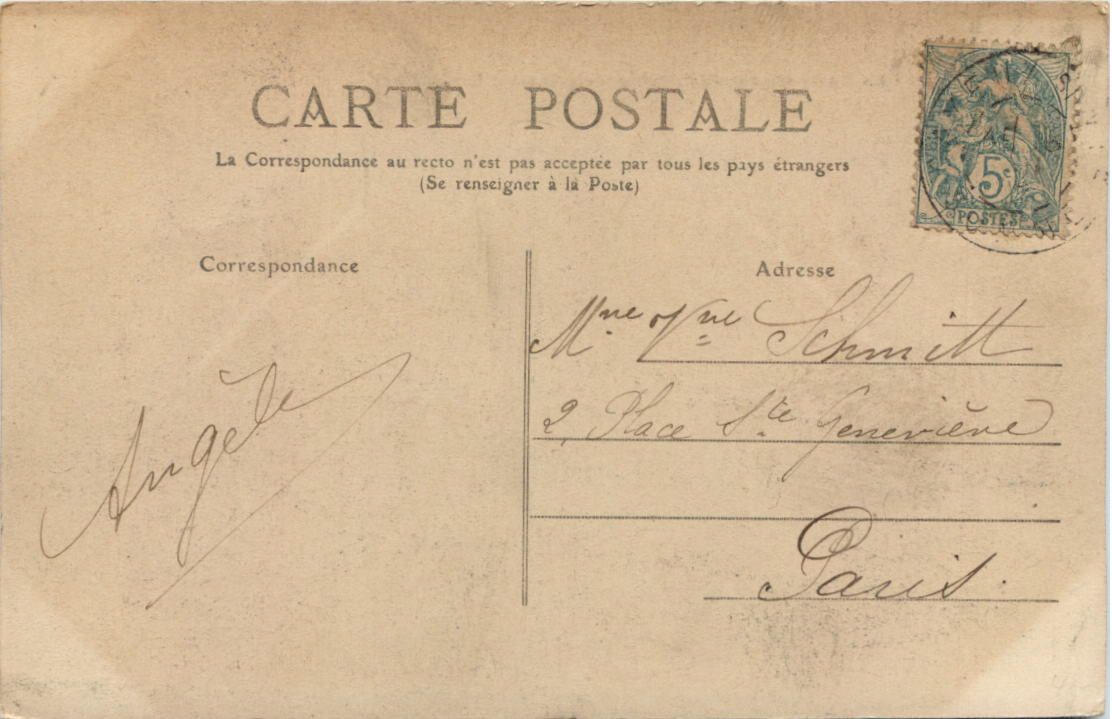 CARTE POSTALE
La Correspondance au recto n'est pas acceptée par tous les pays étrangers
(Se renseigner à la Poste)
5c
POSTES
Correspondance
Adresse
Angèle
Mme Vve Schmitt
2, Place Ste Geneviève
Paris.